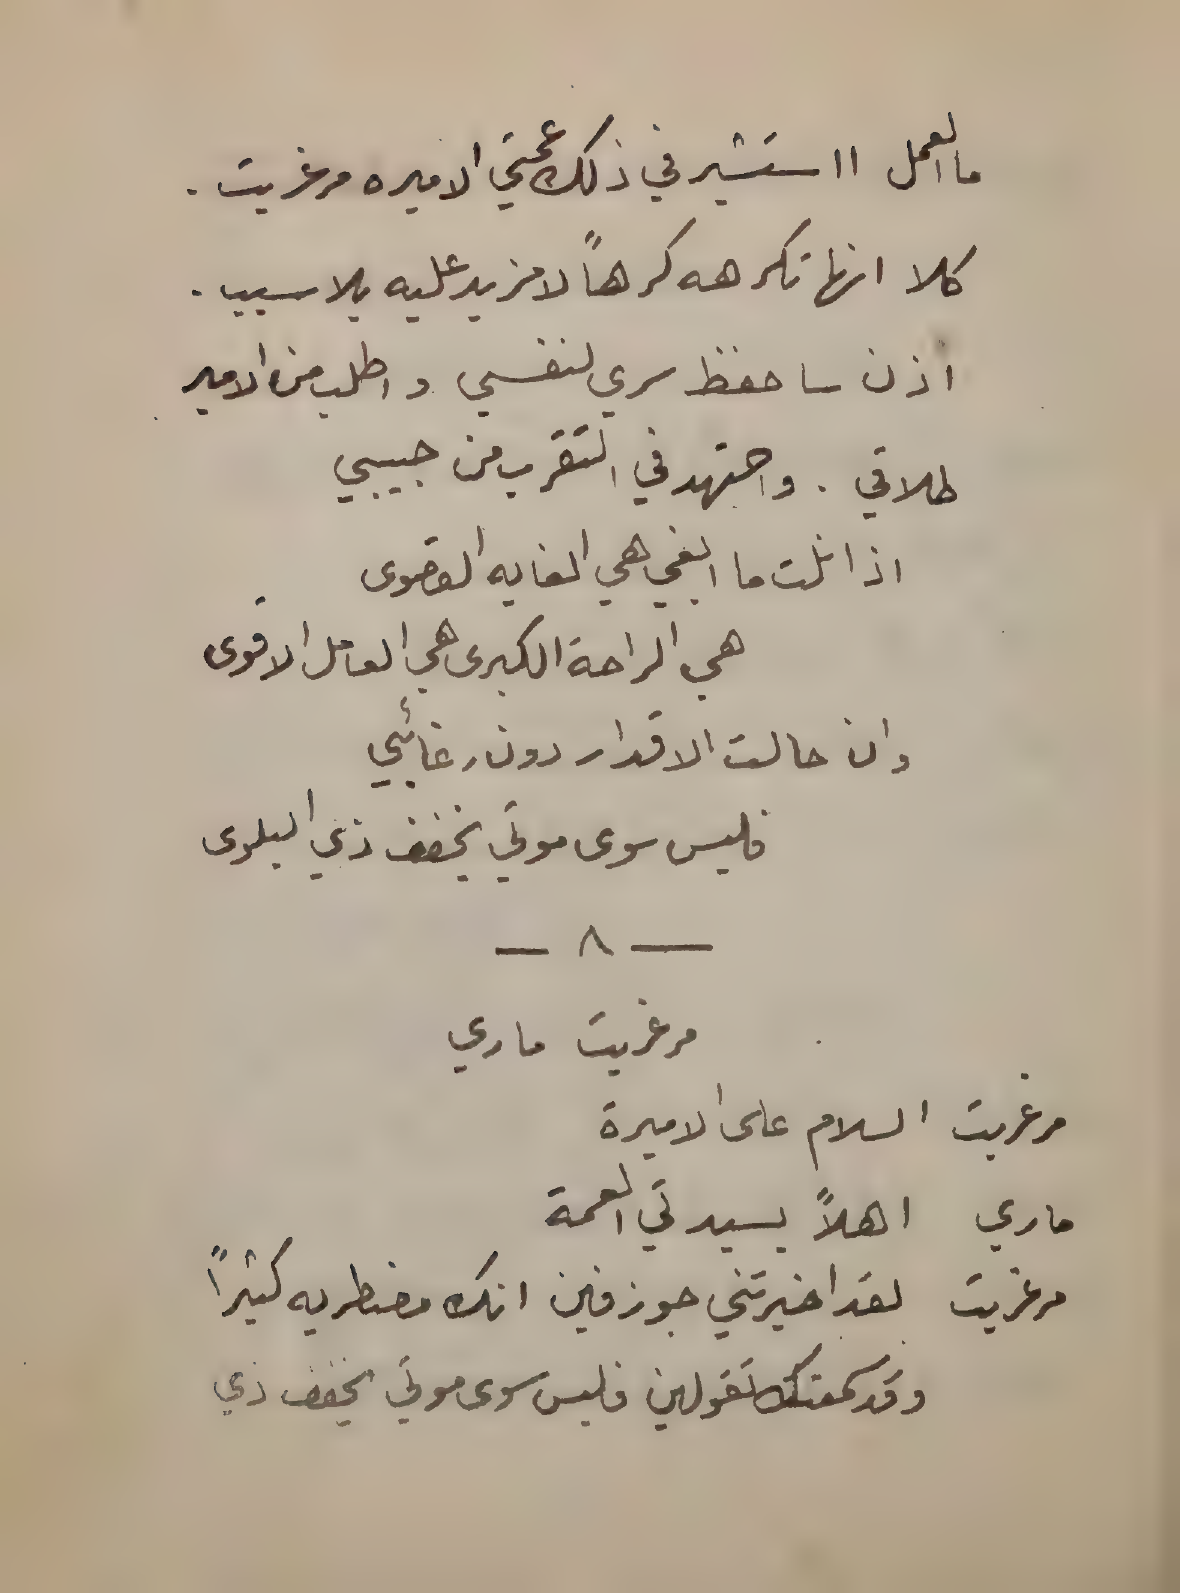 ما العمل ااستشير في ذلك عمتي الاميره مرغريت .
كلا انها تكرهه كرهاً لا مزيد عليه بلا سبب .
اذن ساحفظ سري لنفسي واطلب من الامير
طلاقي . واجتهد في التقرب من حبيبي
اذا نلت ما ابغي هي الغايه القصوى
هي الراحة الكبرى هي العامل الاقوى
وان حالت الاقدار دون رغائبي
فليس سوى موتي يخفف ذي البلوى
— ٨ —
مرغريت ماري
مرغريت السلام على الاميرة
ماري اهلاً بسيدتي العمة
مرغريت لقد اخبرتني جوزفين انك مضطربه كثيراً
وقد سمعتك تقولين فليس سوى موتي يخفف ذي